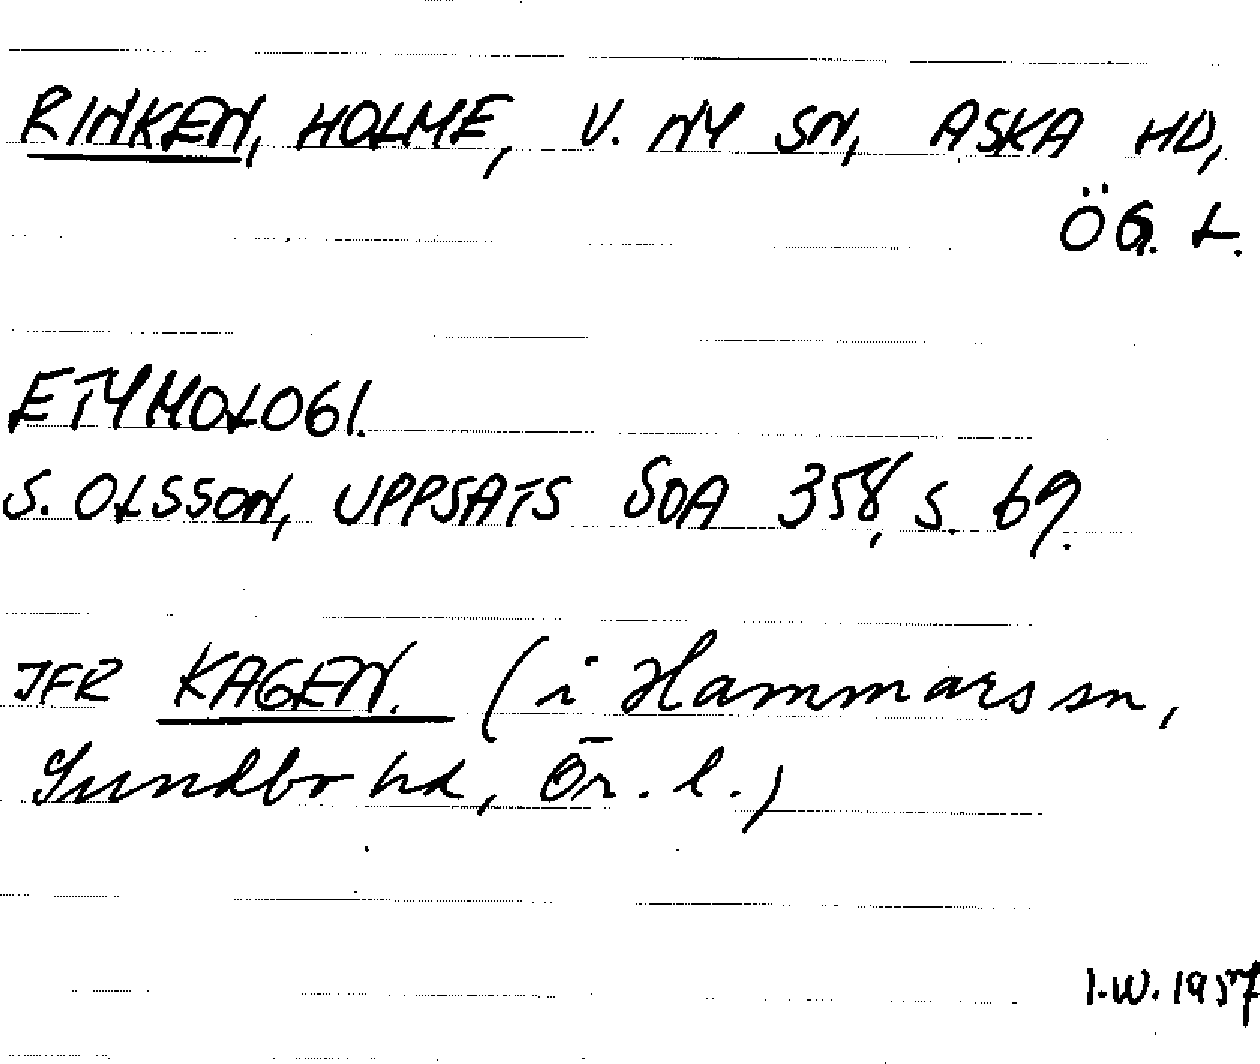 RINKEN, HOLME, V. NY SN, ASKA HD,
ÖG. L.
ETYMOLOGI.
S. OLSSON, UPPSATS SOA 358, S. 69.
JFR KAGEN. (i Hammars sn,
Sundbo hd, Ör. l.)
I.W. 1957